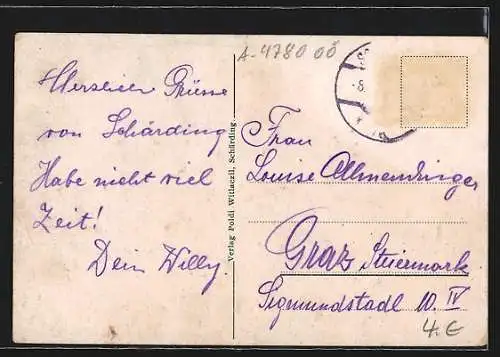 A-4780 OÖ
Herzlich Grüsse
von Schärding
Habe nicht viel
Zeit!
Dein Willy.
Verlag Poldi Witlaczil, Schärding.
Frau
Louise Allmendinger
Graz Steiermark
Sigmundstadl 10. IV
4.€